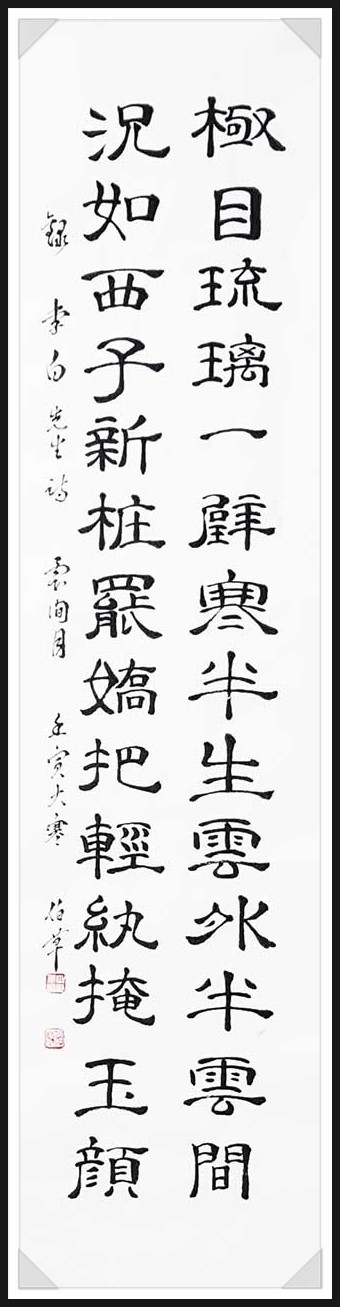 極目琉璃一辟寒半生雲外半雲間
況如西子新桩罷嬌把輕紈掩玉顏
錄 李白先生詩 雲间月 壬寅大寒